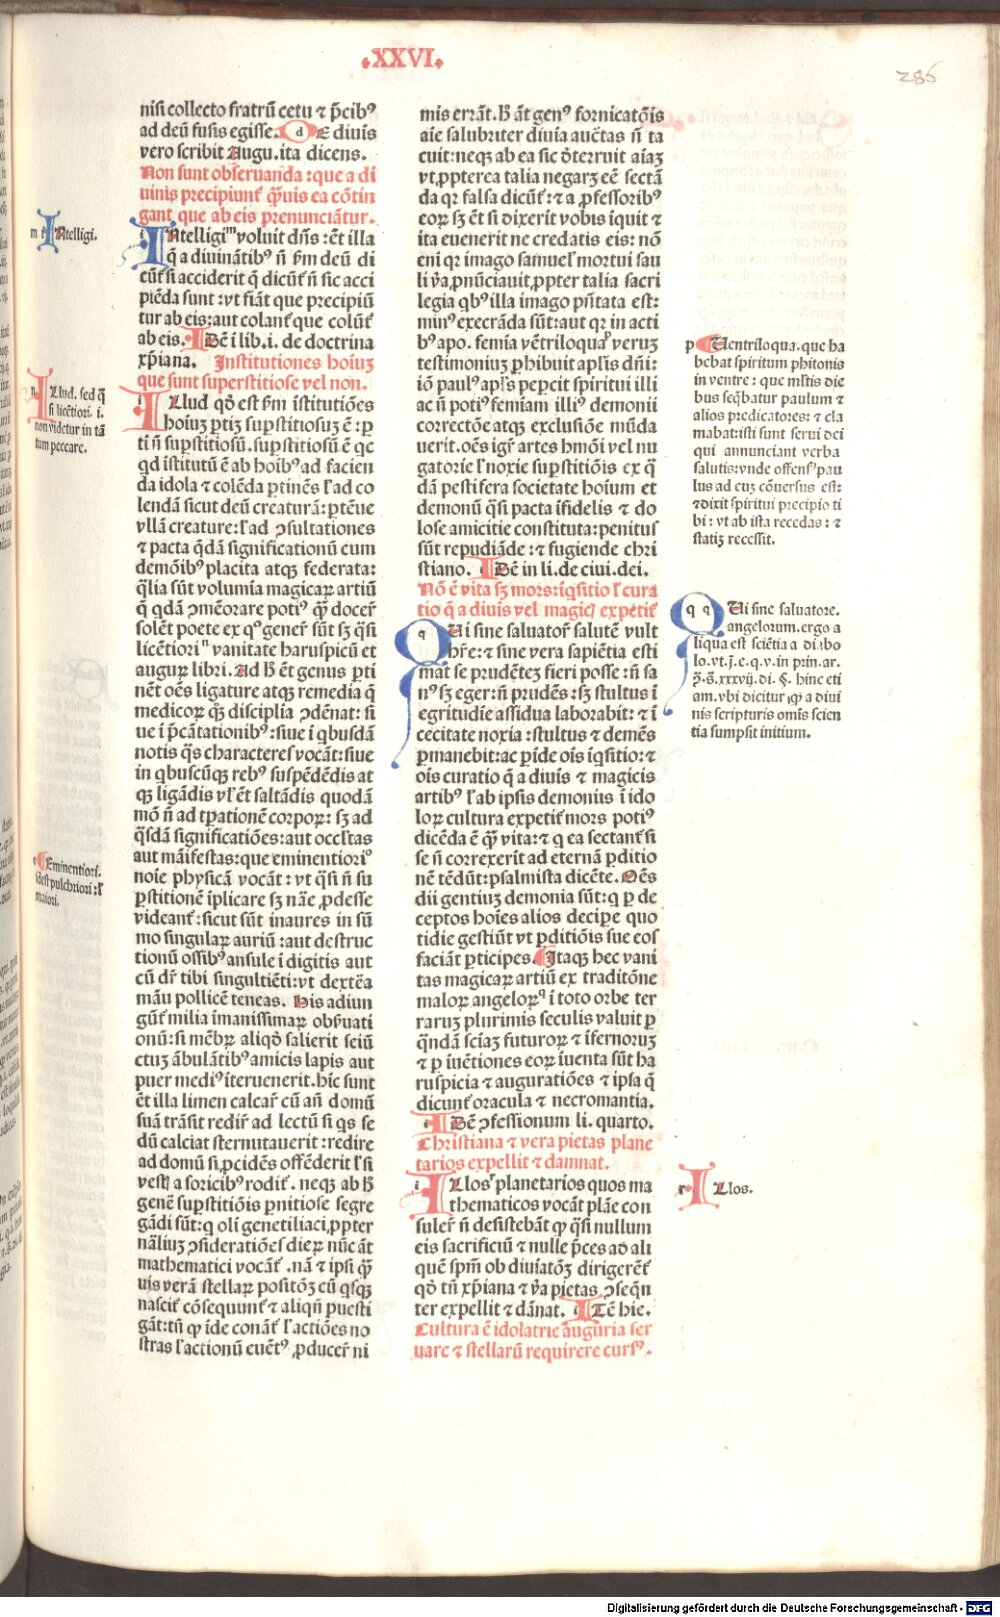 .XXVI.
286
nisi collecto fratrū cetu ⁊ p̄cibꝰ
ad deū fusis egisse. d E diuis
vero scribit Augu. ita dicens.
Non sunt obseruanda : que a di
uinis precipiunt᷑ q̄uis ea cōtin
gant que ab eis prenunciātur.
INtelligiᵐ voluit dn̄s : ēt illa
q̄ a diuinātibꝰ n̄ ẜm deū di
cūt᷑ si acciderit q̄ dicūt᷑ n̄ sic acci
piēda sunt : vt fiāt que precipiū
tur ab eis : aut colant᷑ que colūt᷑
ab eis. IDē i lib. i. de doctrina
xp̄iana. Institutiones hoiuꝫ
que sunt superstitiose vel non.
ILlud qd̓ est ẜm īstitutiōes
hoiuꝫ ꝑtiꝫ suꝑstitiosuꝫ ē : ꝑ
ti n̄ suꝑstitiosū. suꝑstitiosū ē qc
qd īstitutū ē ab hoībꝰ ad facien
da idola ⁊ colēda ꝑtinēs l᷑ ad co
lendā sicut deū creaturā : ꝑtēue
vllā creature : l᷑ ad ↄsultationes
⁊ pacta q̄dā significationū cum
demōibꝰ placita atqꝫ federata :
q̄lia sūt volumia magicaꝝ artiū
q̄ qdā ↄmēorare potiꝰ q̄ꝫ docer᷑
solēt poete ex qꝰ gener᷑ sūt sꝫ q̄si
licētioriⁿ vanitate haruspicū et
auguꝝ libri. Ad h̄ ēt genus ꝑti
nēt oēs ligature atqꝫ remedia q̄
medicoꝝ q̄ꝫ disciplia ↄdēnat : si
ue i p̄cātationibꝰ : siue i qbusdā
notis q̄s characteres vocāt : siue
in qbuscūqꝫ rebꝰ suspēdēdis at
qꝫ ligādis vl᷑ ēt saltādis quodā
mō n̄ ad tꝑationē corpoꝝ : sꝫ ad
q̄sdā significatiōes : aut occl̓tas
aut māifestas : que eminentioriᵒ
noīe physicā vocāt : vt q̄si n̄ su
ꝑstitionē iplicare sꝫ nāe ꝓdesse
videant᷑ : sicut sūt inaures in sū
mo singulaꝝ auriū : aut destruc
tionū ossibꝰ ansule i digitis aut
cū dr̄ tibi singultiēti : vt dextēa
māu pollicē teneas. His adiun
gūt᷑ milia imanissimaꝝ obẜuati
onū : si mēbꝝ aliqd̓ salierit seiū
ctuꝫ ābulātibꝰ amicis lapis aut
puer mediꝰ iteruenerit. hīc sunt
ēt illa limen calcar᷑ cū añ domū
suā trāsit redir᷑ ad lectū si qs se
dū calciat sternutauerit : redire
ad domū si ꝓcidēs offēderit l᷑ si
vestꝭ a soricibꝰ rodit᷑. neqꝫ ab h̄
genē suꝑstitiōis ꝑnitiose segre
gādi sūt : q oli genetiliaci, ꝓpter
nāliuꝫ ↄsideratiōes dieꝝ nūc āt
mathematici vocāt᷑. nā ⁊ ipsi q̄ꝫ
uis verā stellaꝝ positōꝫ cū qsqꝫ
nascit᷑ cōsequunt᷑ ⁊ aliqn̄ ꝑuesti
gāt : tn̄ ꝙ ide conāt᷑ l᷑ actiōes no
stras l᷑ actionū euētꝰ ꝓducer᷑ ni
mis errāt. h̄ āt genꝰ fornicatōis
aīe salubriter diuia auctas n̄ ta
cuit : neqꝫ ab ea sic d̓terruit aīaꝫ
vt ꝓpterea talia negarꝫ eē sectā
da qꝛ falsa dicūt᷑ : ⁊ a ꝓfessoribꝰ
eoꝝ sꝫ ēt si dixerit vobis iquit ⁊
ita euenerit ne credatis eis : nō
eni qꝛ imago samuel᷑ mortui sau
li v̓a ꝓnūciauit ꝓpter talia sacri
legia qbꝰ illa imago pn̄tata est :
minꝰ execrāda sūt : aut qꝛ in acti
bꝰ apo. femīa vētriloquaᵖ veruꝫ
testimoniuꝫ ꝑhibuit apl̓is dn̄i :
iō paulꝰ apl̓s pepcit spiritui illi
ac n̄ potiꝰ femīam illiꝰ demonii
correctōe atqꝫ exclusiōe mūda
uerit. oēs igr̄ artes hmōi vel nu
gatorie l᷑ noxie suꝑstitiōis ex q̄
dā pestifera societate hoium et
demonū q̄si pacta ifidelis ⁊ do
lose amicitie constituta : penitus
sūt repudiāde : ⁊ fugiende chri
stiano. IDē in li. de ciui. dei.
Nō ē vita sꝫ mors : iq̄sitio l᷑ cura
tio q̄ a diuis vel magicꝭ expetit᷑
QUi sine saluator᷑ salutē vult
hr̄e : ⁊ sine vera sapiētia esti
mat se prudētēꝫ fieri posse : n̄ sa
nꝰ sꝫ eger : n̄ prudēs : sꝫ stultus ī
egritudīe assidua laborabit : ⁊ ī
cecitate noxia : stultus ⁊ demēs
ꝑmanebit : ac ꝑide oīs iq̄sitio : ⁊
oīs curatio q̄ a diuīs ⁊ magicis
artibꝰ l᷑ ab ipsis demonius i ido
loꝝ cultura expetit᷑ mors potiꝰ
dicēda ē q̄ꝫ vita : ⁊ q ea sectant᷑ si
se n̄ correxerit ad eternā ꝑditio
nē tēdūt : psalmista dicēte. Oēs
dii gentiuꝫ demonia sūt : q ꝑ de
ceptos hoīes alios decipe quo
tidie gestiūt vt ꝑditiōis sue eos
faciāt ꝑticipes. Itaqꝫ hec vani
tas magicaꝝ artiū ex traditōne
maloꝝ angeloꝝ ᑫ i toto orbe ter
raruꝫ plurimis seculis valuit ꝑ
q̄ndā sciaꝫ futuroꝝ ⁊ iferno​ruꝫ
⁊ ꝑ iuētiones eoꝝ iuenta sūt ha
ruspicia ⁊ auguratiōes ⁊ ipsa q̄
dicunt᷑ oracula ⁊ necromantia.
IDē ↄfessionum li. quarto.
Christiana ⁊ vera pietas plane
tarios expellit ⁊ damnat.
ILlosʳ planetarios quos ma
thematicos vocāt plāe con
suler᷑ n̄ desistebāt ꝙ q̄si nullum
eis sacrificiū ⁊ nulle p̄ces ad ali
quē spm̄ ob diuiatōꝫ dirigerēt᷑
qd̓ tn̄ xp̄iana ⁊ v̓a pietas ↄseq̄n
ter expellit ⁊ dānat. ITē hie.
Cultura ē idolatrie auguria ser
uare ⁊ stellarū requirere cursꝰ.
m INtelligi.
n ILlud. sed q̄
si licētiori. i.
non videtur in tā
tum peccare.
o Eminentiori.
idest pulchriori : l᷑
maiori.
p Uentriloqua. que ha
bebat spiritum phitonis
in ventre : que ml̓tis die
bus seq̄batur paulum ⁊
alios predicatores : ⁊ cla
mabat : isti sunt serui dei
qui annunciant verba
salutis : vnde offensꝰ pau
lus ad euꝫ cōuersus est :
⁊ dixit spiritui precipio ti
bi : vt ab ista recedas : ⁊
statiꝫ recessit.
q QUi sine saluatore.
angelorum. ergo a
liqua est sciētia a diabo
lo. vt. j. e. q. v. in prin. ar.
ꝫ. s̄. xxxvij. di. §. hinc eti
am. vbi dicitur ꝙ a diui
nis scripturis omīs scien
tia sumpsit initium.
r ILlos.
Digitalisierung gefördert durch die Deutsche Forschungsgemeinschaft - DFG